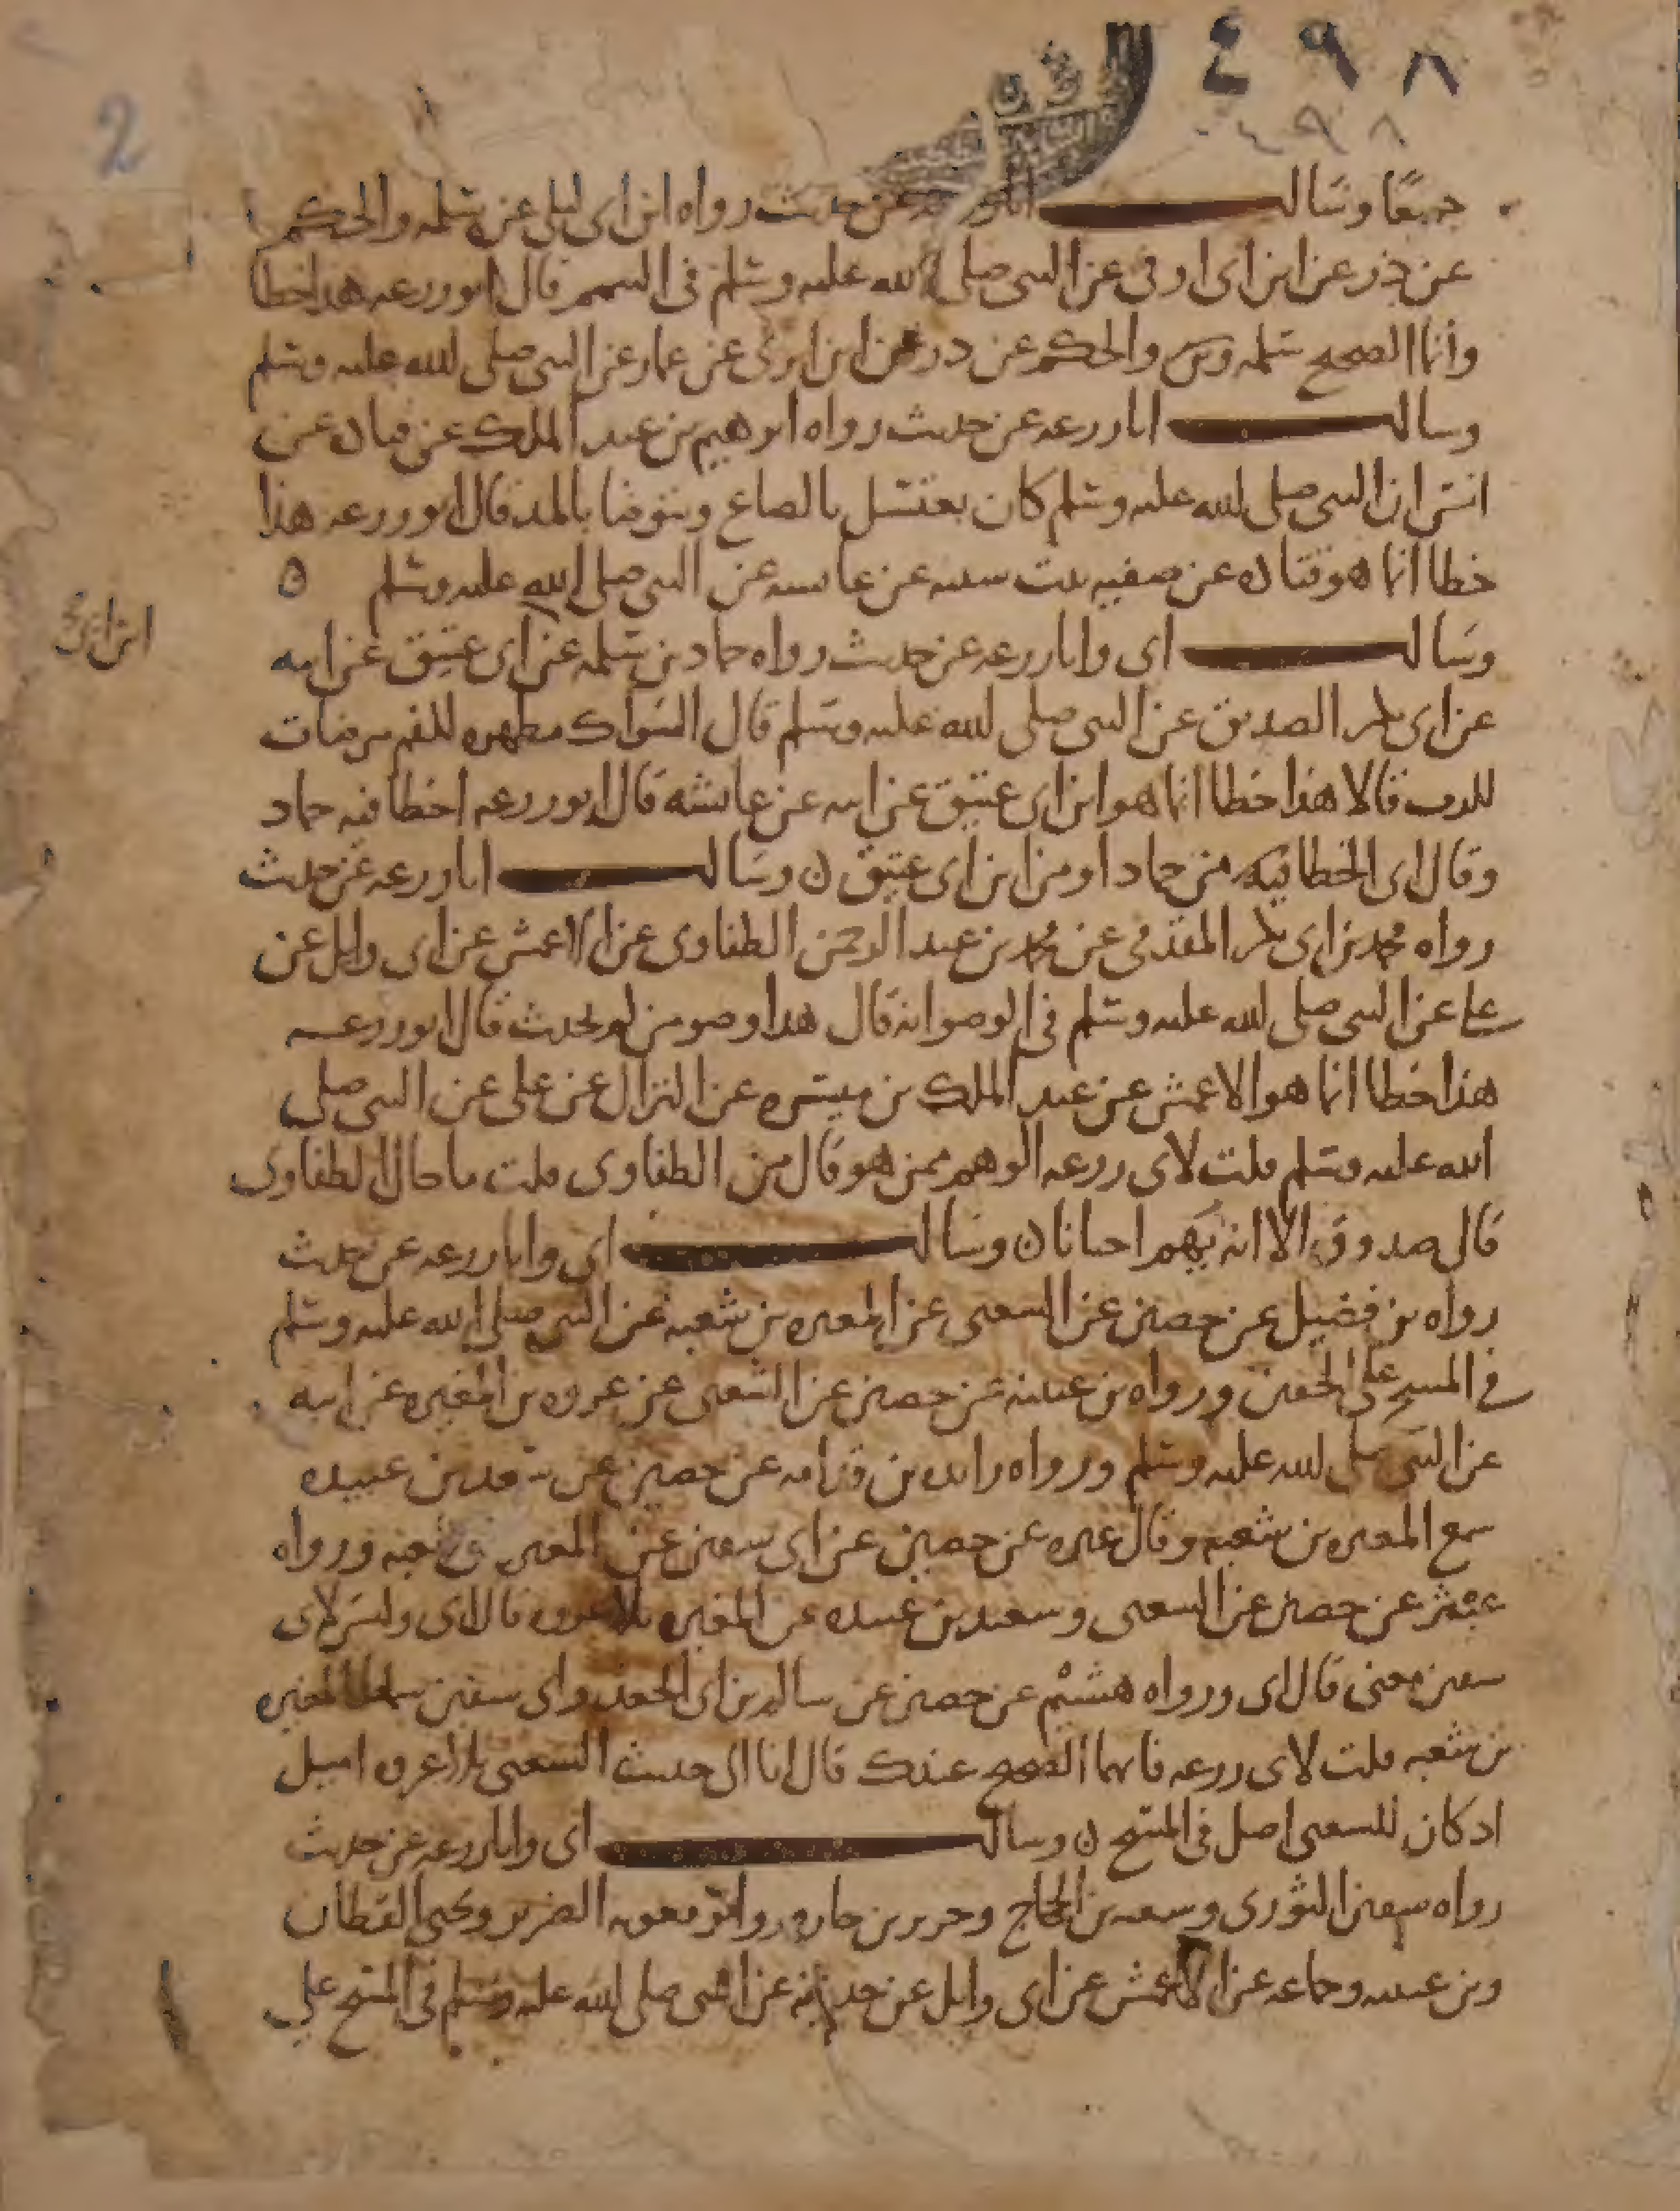 ٤٩٨
٤٩٨
2
جميعا وسألت ابا زرعة عن حديث رواه ابن ابى ليلى عن سلمه والحكم
عن ذر عن ابن ابى اوفى عن النبى صلى الله عليه وسلم فى التيمم قال ابو زرعه هذا خطا
وانما الصحيح سلمه والحكم عن ذر عن ابن ابزى عن عمار عن النبى صلى الله عليه وسلم
وسالت ابا زرعه عن حديث رواه ابو هيم بن عبد الملك عن قتادة عن
انس ان النبى صلى الله عليه وسلم كان يغتسل بالصاع ويتوضا بالمد قال ابو زرعه هذا
خطا انما هو قتادة عن صفيه بنت شيبه عن عائشه عن النبى صلى الله عليه وسلم ه
وسالت ابى وابا زرعه عن حديث رواه حماد بن سلمه عن ابى عتيق عن ابيه
عن ابى بكر الصديق عن النبى صلى الله عليه وسلم قال السواك مطهره للفم مرضات
للرب قالا هذا خطا انما هو ابن ابى عتيق عن ابيه عن عائشه قال ابو زرعه اخطا فيه حماد
وقال ابى الخطا فيه من حماد او من ابن ابى عتيق ن وسالت ابا زرعه عن حديث
رواه محمد بن ابى بكر المقدمى عن محمد بن عبد الرحمن الطفاوى عن الاعمش عن ابى وايل عن
على عن النبى صلى الله عليه وسلم فى الوضو انه قال هذا وضو من لم يحدث قال ابو زرعه
هذا خطا انما هو الاعمش عن عبد الملك بن ميسره عن النزال عن على عن النبى صلى
الله عليه وسلم قلت لابى زرعه الوهم ممن هو قال من الطفاوى قلت ما حال الطفاوى
قال صدوق الا انه يهم احيانا ن وسالت ابى وابا زرعه عن حديث
رواه بن فضيل عن حصين عن الشعبى عن المغيره بن شعبه عن النبى صلى الله عليه وسلم
فى المسح على الخفين ورواه بن عيينه عن حصين عن الشعبى عن عروه بن المغيره عن ابيه
عن النبى صلى الله عليه وسلم ورواه زائده بن قدامه عن حصين عن سعد بن عبيده
سمع المغيره بن شعبه وقال غيره عن حصين عن ابى سفين عن المغيره بن شعبه ورواه
عبثر عن حصين عن الشعبى وسعد بن عبيده عن المغيره بلا عروه قال ابى وليس لابى
سفين معنى قال ابى ورواه هشيم عن حصين عن سالم بن ابى الجعد وابى سفين سمعا المغيره
بن شعبه قلت لابى زرعه فايهما الصحيح عندك قال انا الى حديث الشعبى بلا عروه اميل
اذ كان للشعبى اصل فى المسح ن وسالت ابى وابا زرعه عن حديث
رواه سفين الثورى وشعبه بن الحجاج وجرير بن حازم وابو معويه الضرير ويحيى القطان
وبن عيينه وجماعه عن الاعمش عن ابى وايل عن حذيفه عن النبى صلى الله عليه وسلم فى المسح على